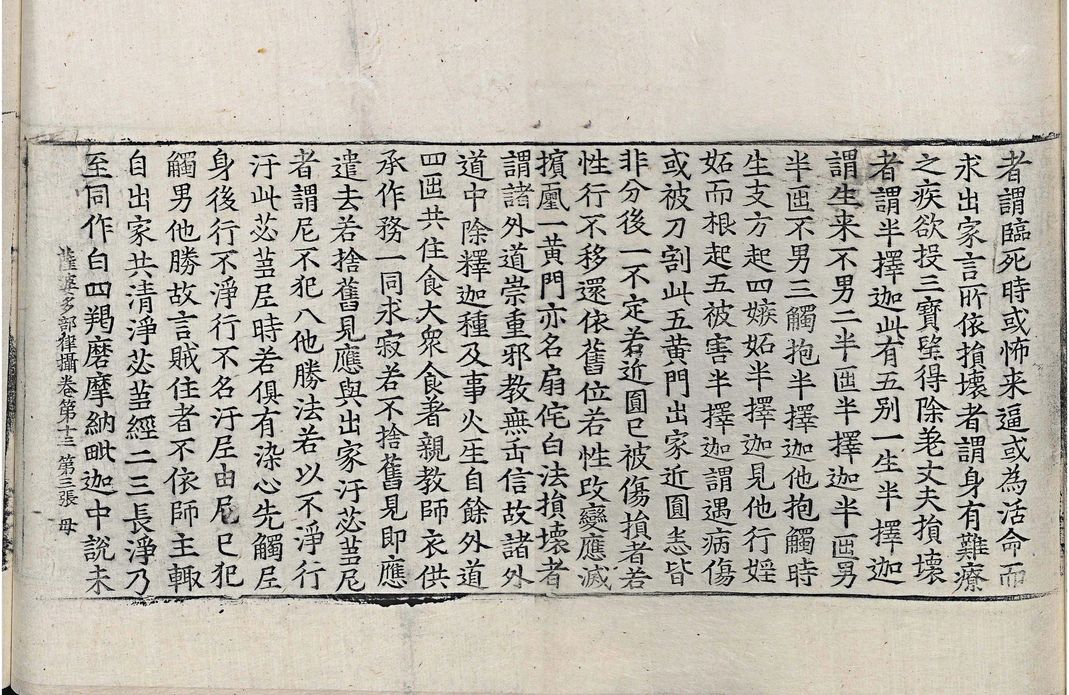 者謂臨死時或怖来逼或為活命而
求出家言所依損壞者謂身有難療
之疾欲投三寶望得除差丈夫損壞
者謂半擇迦此有五別一生半擇迦
謂生来不男二半𠕀半擇迦半𠕀男
半𠕀不男三觸抱半擇迦他抱觸時
生支方起四嫉妬半擇迦見他行婬
妬而根起五被害半擇迦謂遇病傷
或被刀割此五黃門出家近圓悉皆
非分後一不定若近圓已被傷損者若
性行不移還依舊位若性改變應滅
擯凰一黃門亦名扇侘白法損壞者
謂諸外道崇重邪教無舌信故諸外
道中除釋迦種及事火生自餘外道
四𠕀共住食大衆食著親教師衣供
承作務一同求寂若不捨舊見即應
遣去若捨舊見應與出家汙苾芻尼
者謂尼不犯八他勝法若以不淨行
汙此苾芻𡰱時若俱有染心先觸𡰱
身後行不淨行不名汙𡰱由尼已犯
觸男他勝故言賊住者不依師主輙
自出家共清淨苾芻經二三長淨乃
至同作白四羯磨摩納毗迦中說未
薩婆多部律攝卷第十三 第三張 母